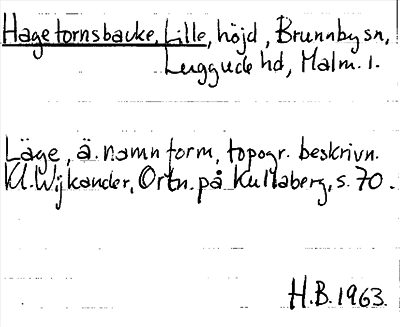 Hagetornsbacke, Lille, höjd, Brunnby sn,
Luggude hd, Malm. l.
Läge, ä. namnform, topogr. beskrivn.
Kl. Wijkander, Ortn. på Kullaberg, s. 70.
H.B. 1963.